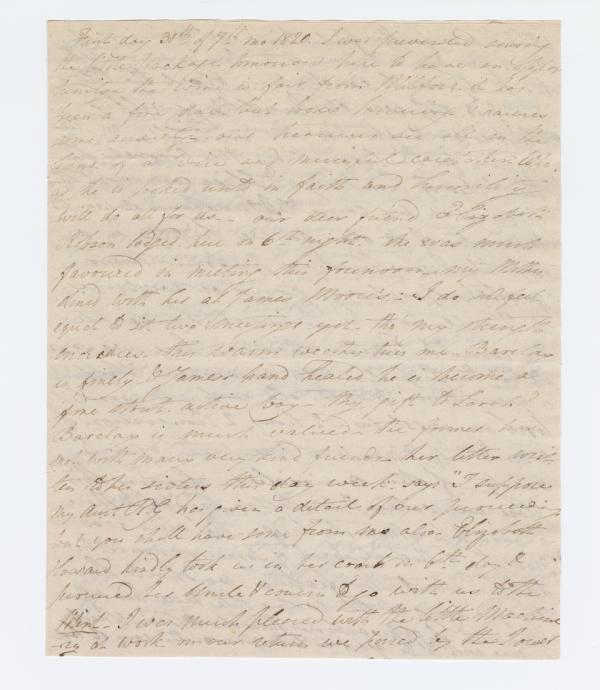 First day 30th of 7th mo 1820. I was prevented sending
the little package tomorrow hope to have an
the wind is fair from it has
been a fine day but looks &
some out however are all in the
hand of a wise and merciful
as he is looked unto in faith and humility
will do all for us - our dear friend Elizabeth
Robson lodged here on 6th night. she was much
favoured in meeting this forenoon - my Mother
dined with her at James Moore's - I do not feel
equal to sit two meetings yet - tho' my strength
encreases this warm weather tires me Barclay
is finely & James's hand healed he is become a
fine stout active boy - thy gift to Sarah
Barclay is much valued - the former has
met with many very kind friends her letter writ
ten to her sisters this day week says "I suppose
my Aunt R G has given a detail of our proceedings
but you shall have some from me also Elizabeth
Howard kindly took us in her coach on 6th day &
procured her Uncle & cousin to go with us to the
Mint - I was much pleased with the little Machine
ry at work on our return we passed by the Tower